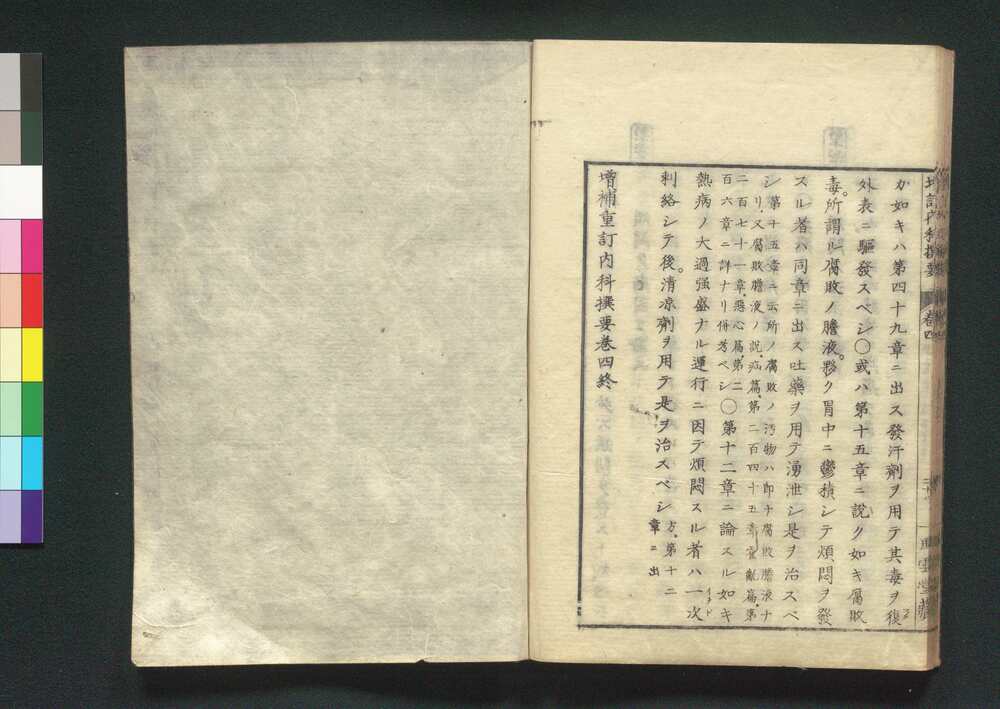 増訂内科撰要　巻四
か如キハ第四十九章ニ出ス發汗劑ヲ用テ其毒ヲ復
外表ニ驅發スベシ〇或ハ第十五章ニ說ク如キ腐敗
毒。所謂ル腐敗ノ膽液。夥ク胃中ニ鬱積シテ煩悶ヲ發
スル者ハ同章ニ出ス吐藥ヲ用テ湧泄シ是ヲ治スベ
シ第十五章ニ云所ノ腐敗ノ汚物ハ即チ腐敗膽液ナ
リ。又腐敗膽液ノ說。疝篇。第二百四十五章霍亂篇。第
二百七十一章。惡心篇。第二
百六章ニ詳ナリ併考ベシ〇第十二章ニ論スル如キ
熱病ノ大過強盛ナル運行ニ因テ煩悶スル者ハ一次
刺絡シテ後。清凉劑ヲ用テ是ヲ治スベシ方。第十二
章ニ出
增補重訂內科撰要卷四終